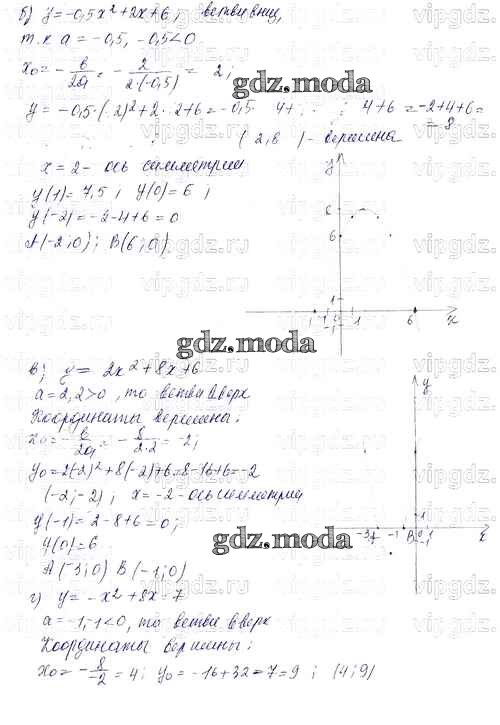 б) y = -0,5x² + 2x + 6; ветви вниз,
т.к a = -0,5, -0,5<0.
x₀ = - в/2a = - 2/2·(-0,5) = 2;
gdz.moda
y = -0,5·( 2)²+2· 2+6 = -0,5· 4+ 4+6 = -2+4+6=
= 8
( 2, 8 ) - вершина
x = 2 - ось симметрии
y(1) = 7,5; y(0) = 6;
y(-2) = -2-4+6 = 0
A(-2;0); B(6;0)
y
8
6
1
-1
0
1
-1
6
x
gdz.moda
в) y = 2x² + 8x + 6
a = 2, 2>0, то ветви вверх
Координаты вершины:
x₀ = - в/2a = - 8/2·2 = -2;
y₀ = 2(-2)²+8(-2)+6=8-16+6=-2
(-2; -2); x = -2 - ось симметрии
y(-1) = 2-8+6 = 0;
y(0) = 6
A(-3;0) B(-1;0)
y
1
-3A
-1
B
0
1
-1
x
gdz.moda
г) y = -x² + 8x - 7
a = -1, -1<0, то ветви вверх
Координаты вершины:
x₀ = - 8/-2 = 4; y₀ = -16+32-7=9; (4;9)
vipgdz.ru